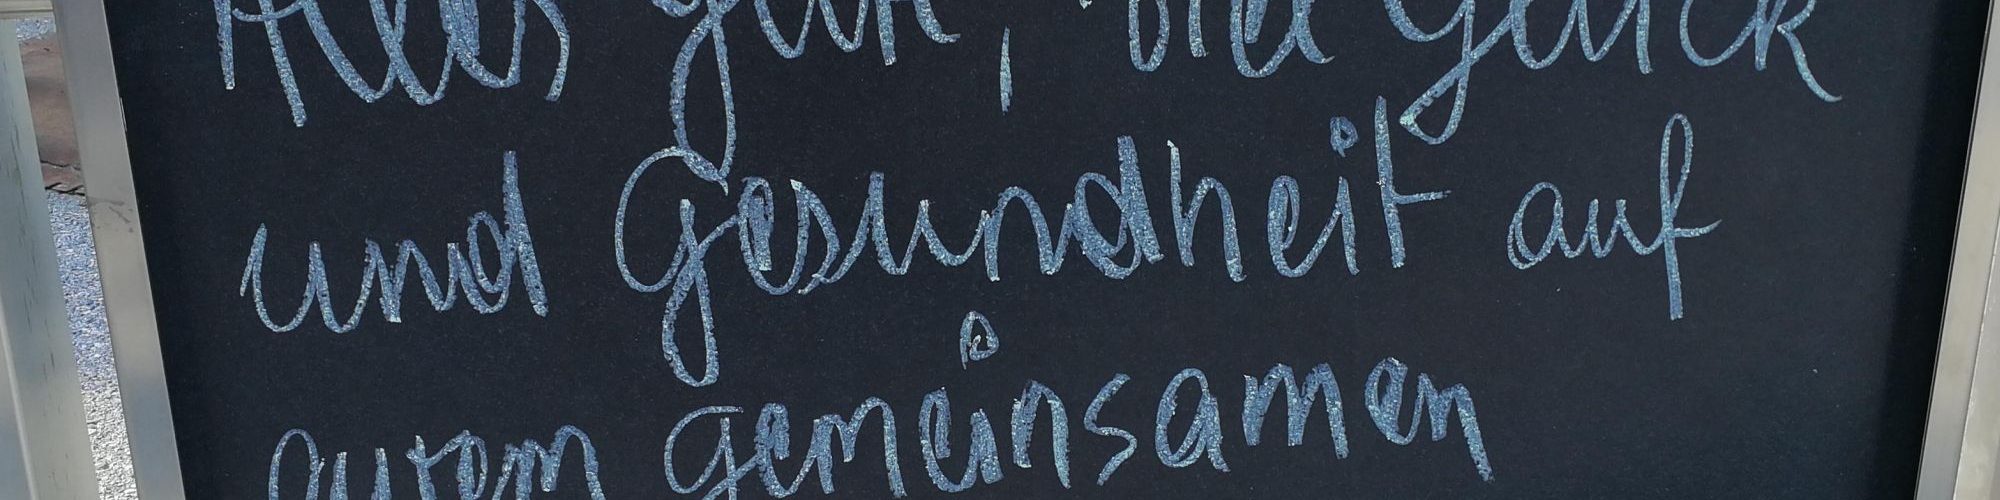 Alles gute, viel Glück
und Gesundheit auf
eurem gemeinsamen